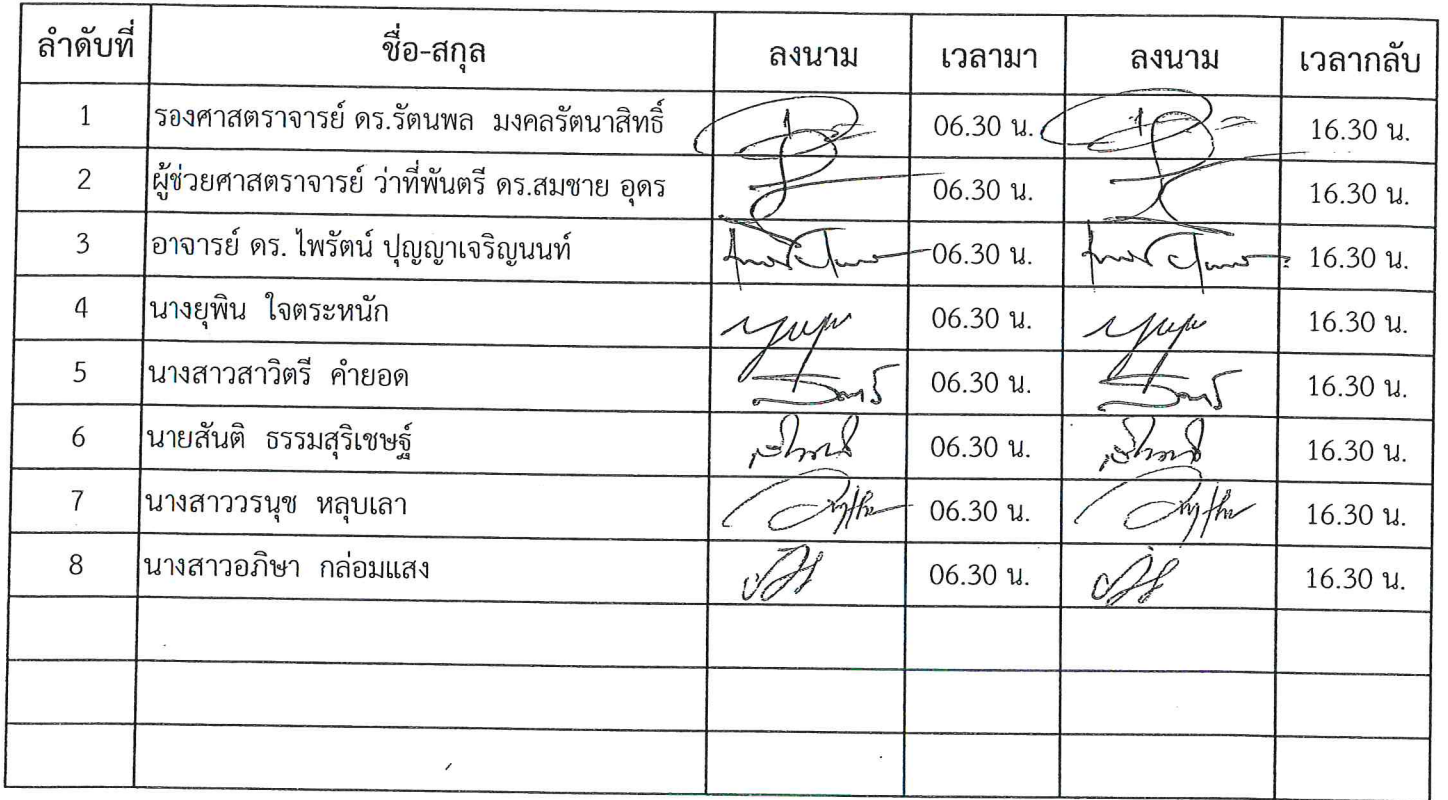 ลำดับที่ ชื่อ-สกุล ลงนาม เวลามา ลงนาม เวลากลับ
1 รองศาสตราจารย์ ดร.รัตนพล มงคลรัตนาสิทธิ์ 06.30 น. 16.30 น.
2 ผู้ช่วยศาสตราจารย์ ว่าที่พันตรี ดร.สมชาย อุดร 06.30 น. 16.30 น.
3 อาจารย์ ดร. ไพรัตน์ ปุญญาเจริญนนท์ 06.30 น. 16.30 น.
4 นางยุพิน ใจตระหนัก 06.30 น. 16.30 น.
5 นางสาวสาวิตรี คำยอด 06.30 น. 16.30 น.
6 นายสันติ ธรรมสุริเชษฐ์ 06.30 น. 16.30 น.
7 นางสาววรนุช หลุบเลา 06.30 น. 16.30 น.
8 นางสาวอภิษา กล่อมแสง 06.30 น. 16.30 น.